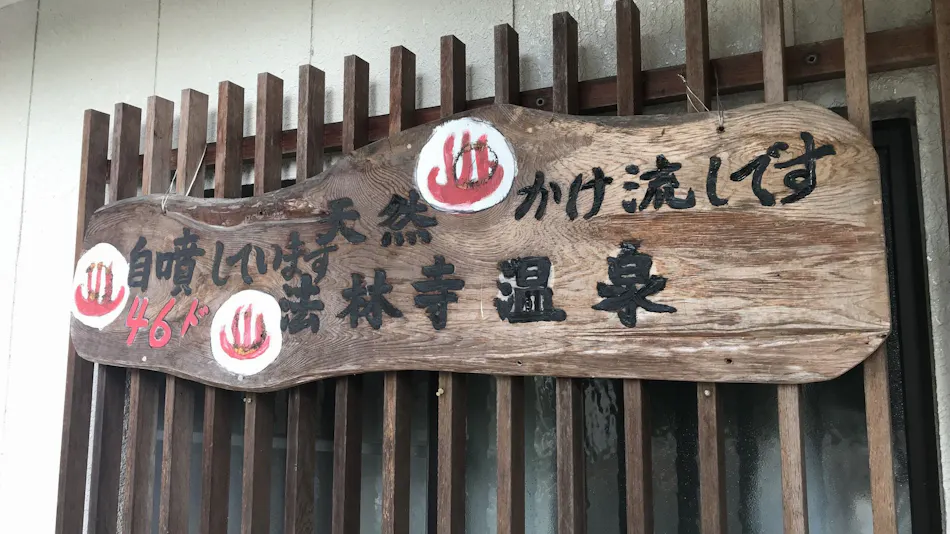 天然 かけ流しです
自噴しています
46ド
法林寺温泉